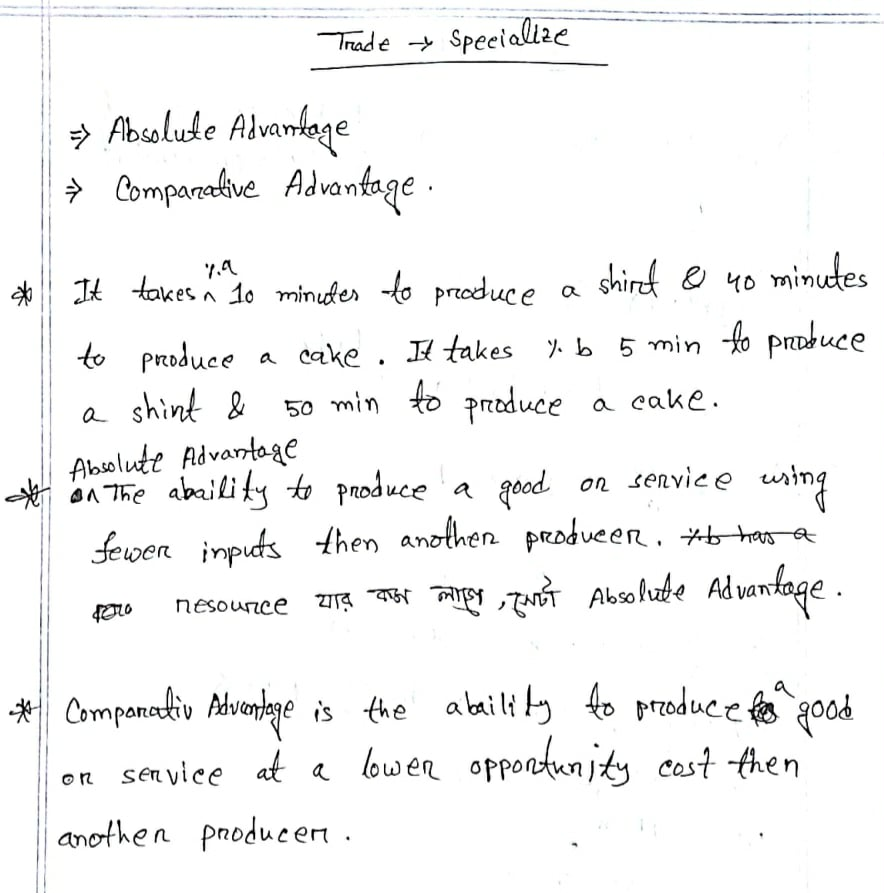 Trade → Specialize
⇒ Absolute Advantage
⇒ Comparative Advantage.
* It takes ^ %.a 10 minutes to produce a shirt & 40 minutes
to produce a cake. It takes %. b 5 min to produce
a shirt & 50 min to produce a cake.
Absolute Advantage
* The abaility to produce a good or service using
fewer inputs then another producer. %b has a
resource যার কম লাগে, সেটা Absolute Advantage.
* Comparativ Advantage is the abaility to produce a good
or service at a lower opportunity cost then
another producer.